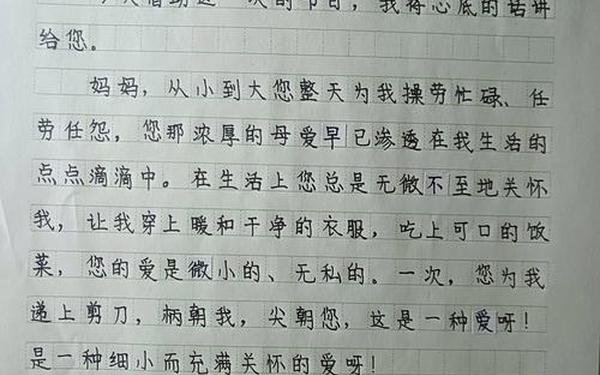 借助这一次的节日，我将心底的话讲
给您。
妈妈，从小到大您整天为我操劳忙碌、任
劳任怨，您那浓厚的母爱早已渗透在我生活的
点点滴滴中。在生活上您总是无微不至地关怀
我，让我穿上暖和干净的衣服，吃上可口的饭
菜，您的爱是微小的、无私的。一次，您为我
递上剪刀，柄朝我，尖朝您，这是一种爱呀！
是一种细小而充满关怀的爱呀！